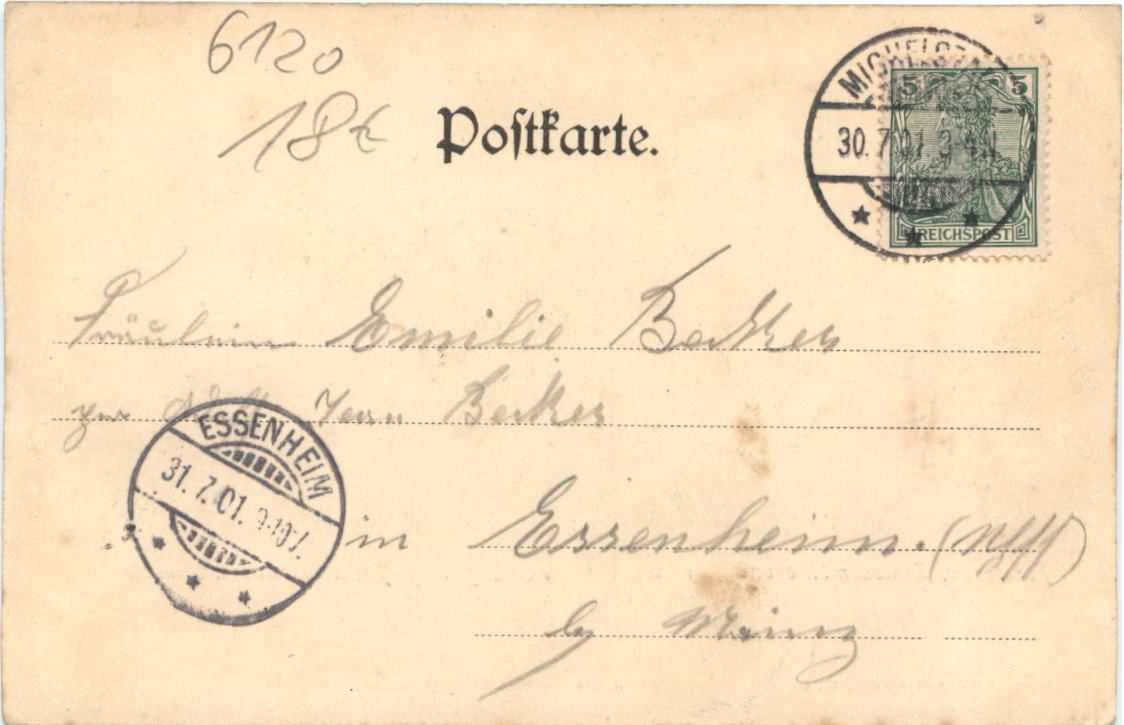 6120
18€
Postkarte.
MICHELSTA
30.7.01. 3-4N
5 5
REICHSPOST
Fräulein Emilie Becker
zur Becker
ESSENHEIM
31.7.01. 9-10V.
in Essenheim.
by Mainz